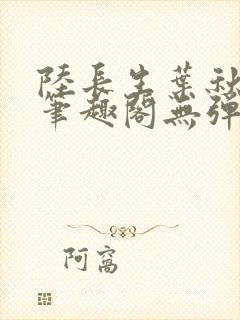 陸長生葉秋
筆趣閣無彈
阿窩